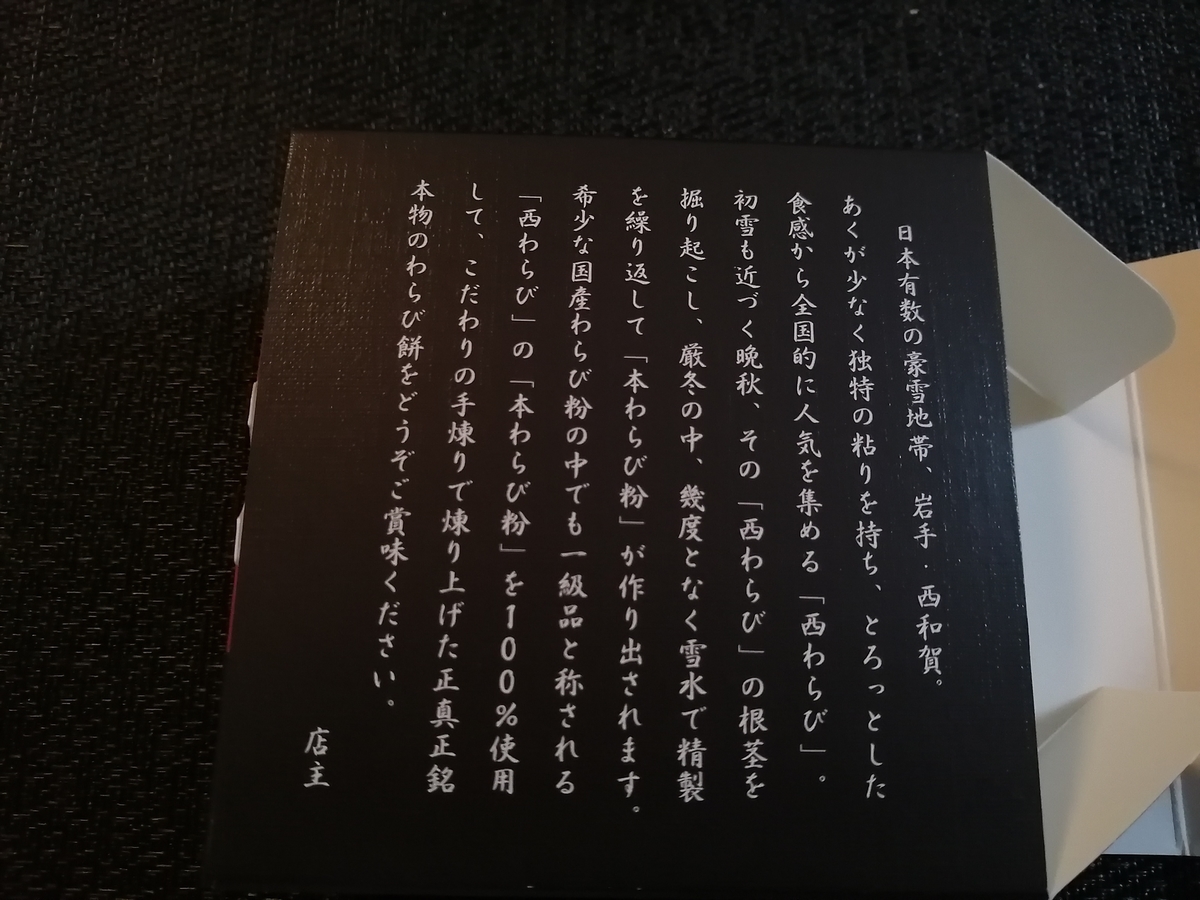 日本有数の豪雪地帯、岩手・西和賀。
あくが少なく独特の粘りを持ち、とろっとした
食感から全国的に人気を集める「西わらび」。
初雪も近づく晩秋、その「西わらび」の根茎を
掘り起こし、厳冬の中、幾度となく雪水で精製
を繰り返して「本わらび粉」が作り出されます。
希少な国産わらび粉の中でも一級品と称される
「西わらび」の「本わらび粉」を100%使用
して、こだわりの手煉りで煉り上げた正真正銘
本物のわらび餅をどうぞご賞味ください。
店主